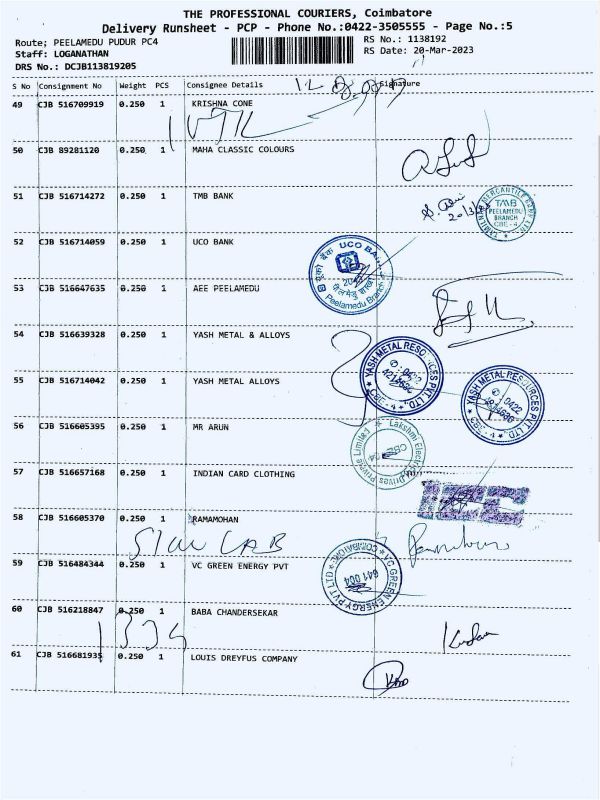 THE PROFESSIONAL COURIERS, Coimbatore
Delivery Runsheet - PCP - Phone No.:0422-3505555 - Page No.:5
Route; PEELAMEDU PUDUR PC4
RS No.: 1138192
Staff: LOGANATHAN
RS Date: 20-Mar-2023
DRS No.: DCJB113819205
S No Consignment No Weight PCS Consignee Details Signature
49 CJB 516709919 0.250 1 KRISHNA CONE
50 CJB 89281120 0.250 1 MAHA CLASSIC COLOURS
51 CJB 516714272 0.250 1 TMB BANK
20/3/23
TAMILNAD MERCANTILE BANK LTD.
TMB
PEELAMEDU
BRANCH
CBE-4
52 CJB 516714059 0.250 1 UCO BANK
UCO BANK
Peelamedu Branch
53 CJB 516647635 0.250 1 AEE PEELAMEDU
54 CJB 516639328 0.250 1 YASH METAL & ALLOYS
YASH METAL RESOURCES PVT. LTD.
CBE - 4
55 CJB 516714042 0.250 1 YASH METAL ALLOYS
YASH METAL RESOURCES PVT. LTD.
CBE - 4
56 CJB 516605395 0.250 1 MR ARUN
Lakshmi Electrical Drives Private Limited
57 CJB 516657168 0.250 1 INDIAN CARD CLOTHING
ICC
58 CJB 516605370 0.250 1 RAMAMOHAN
59 CJB 516484344 0.250 1 VC GREEN ENERGY PVT
VC GREEN ENERGY PVT LTD
COIMBATORE
641 004
60 CJB 516218847 0.250 1 BABA CHANDERSEKAR
61 CJB 516681935 0.250 1 LOUIS DREYFUS COMPANY